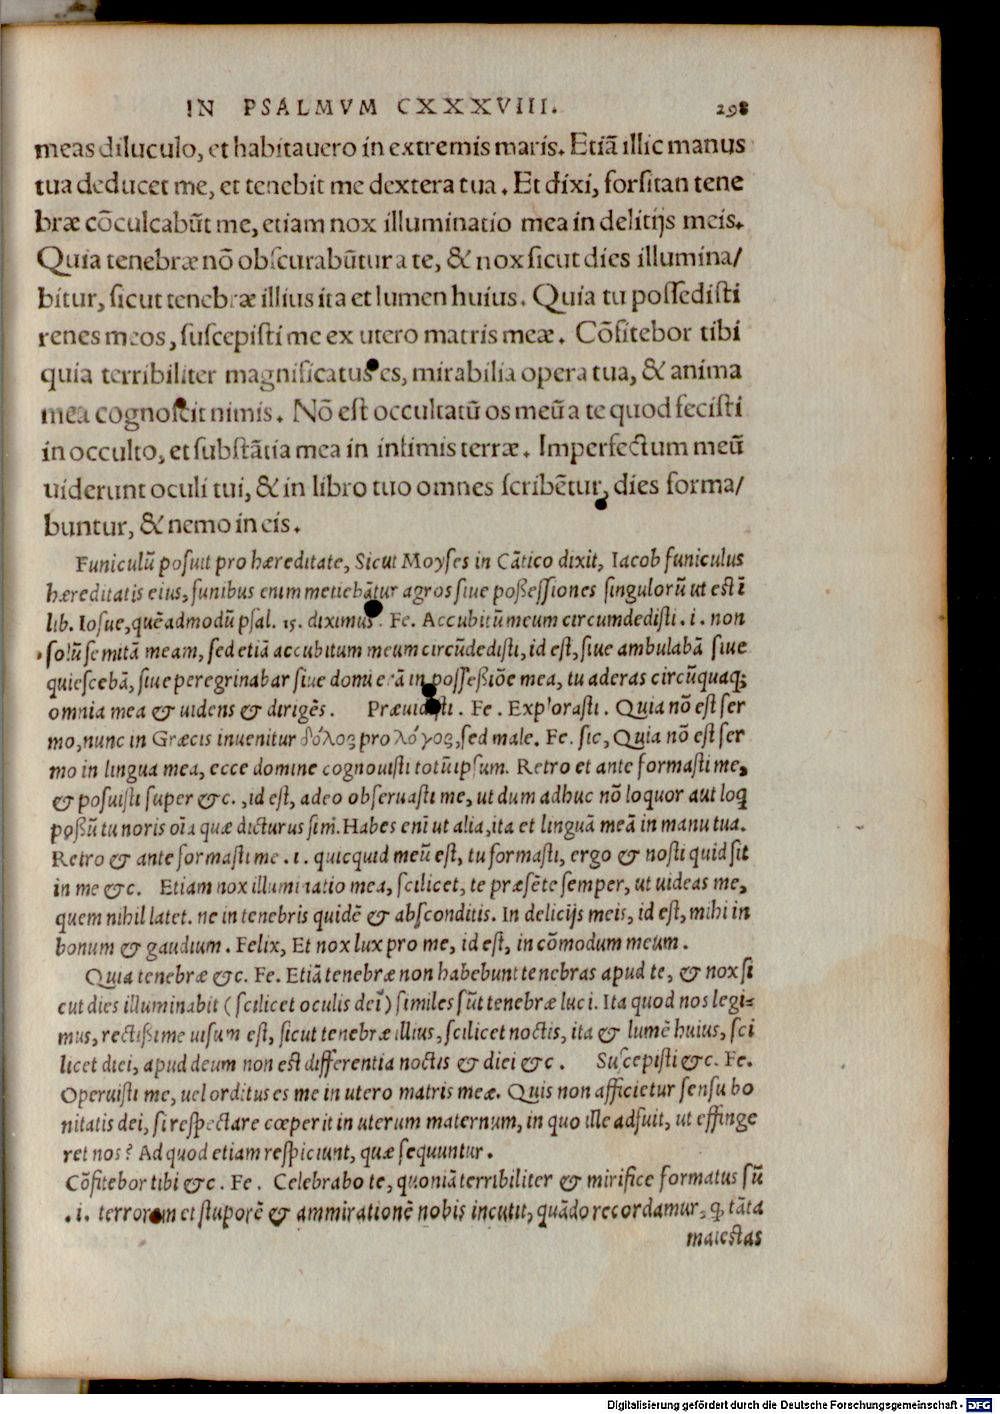 IN PSALMVM CXXXVIII. 298
meas diluculo, et habitauero in extremis maris. Etiã illic manus
tua deducet me, et tenebit me dextera tua. Et dixi, forsitan tene
bræ cõculcabũt me, etiam nox illuminatio mea in delitijs meis.
Quia tenebræ nõ obscurabũtur a te, & nox sicut dies illumina/
bitur, sicut tenebræ illius ita et lumen huius. Quia tu possedisti
renes meos, suscepisti me ex utero matris meæ. Cõfitebor tibi
quia terribiliter magnificatus es, mirabilia opera tua, & anima
mea cognoscit nimis. Nõ est occultatũ os meũ a te quod fecisti
in occulto, et substãtia mea in infimis terræ. Imperfectum meũ
uiderunt oculi tui, & in libro tuo omnes scribẽtur, dies forma/
buntur, & nemo in eis.
Funiculũ posuit pro hæreditate, Sicut Moyses in Cãtico dixit, Iacob funiculus
hæreditatis eius, funibus enim metiebãtur agros siue possessiones singulorũ ut est ĩ
lib. Iosue, quẽadmodũ psal. 15. diximus. Fe. Accubitũ meum circumdedisti .i. non
solũ semitã meam, sed etiã accubitum meum circũdedisti, id est, siue ambulabã siue
quiescebã, siue peregrinabar siue domi erã in possessiõe mea, tu aderas circũquaq;
omnia mea & uidens & dirigẽs. Præuidisti. Fe. Explorasti. Quia nõ est ser
mo, nunc in Græcis inuenitur δόλος pro λόγος, sed male. Fe. sic, Quia nõ est ser
mo in lingua mea, ecce domine cognouisti totũ ipsum. Retro et ante formasti me,
& posuisti super &c., id est, adeo obseruasti me, ut dum adhuc nõ loquor aut loq
possũ tu noris oĩa quæ dicturus sim. Habes enĩ ut alia, ita et linguã meã in manu tua.
Retro & ante formasti me .i. quicquid meũ est, tu formasti, ergo & nosti quid sit
in me &c. Etiam nox illuminatio mea, scilicet, te præsẽte semper, ut uideas me,
quem nihil latet. ne in tenebris quidẽ & absconditis. In delicijs meis, id est, mihi in
bonum & gaudium. Felix, Et nox lux pro me, id est, in cõmodum meum.
Quia tenebræ &c. Fe. Etiã tenebræ non habebunt tenebras apud te, & nox si
cut dies illuminabit (scilicet oculis dei) similes sũt tenebræ luci. Ita quod nos legi=
mus, rectissime uisum est, sicut tenebræ illius, scilicet noctis, ita & lumẽ huius, sci
licet diei, apud deum non est differentia noctis & diei &c. Suscepisti &c. Fe.
Operuisti me, uel orditus es me in utero matris meæ. Quis non afficietur sensu bo
nitatis dei, si respectare cœperit in uterum maternum, in quo ille adfuit, ut effinge
ret nos? Ad quod etiam respiciunt, quæ sequuntur.
Cõfitebor tibi &c. Fe. Celebrabo te, quoniã terribiliter & mirifice formatus sũ
.i. terrorem et stuporẽ & ammirationẽ nobis incutit, quãdo recordamur, q̃ tãta
maiestas
Digitalisierung gefördert durch die Deutsche Forschungsgemeinschaft - DFG